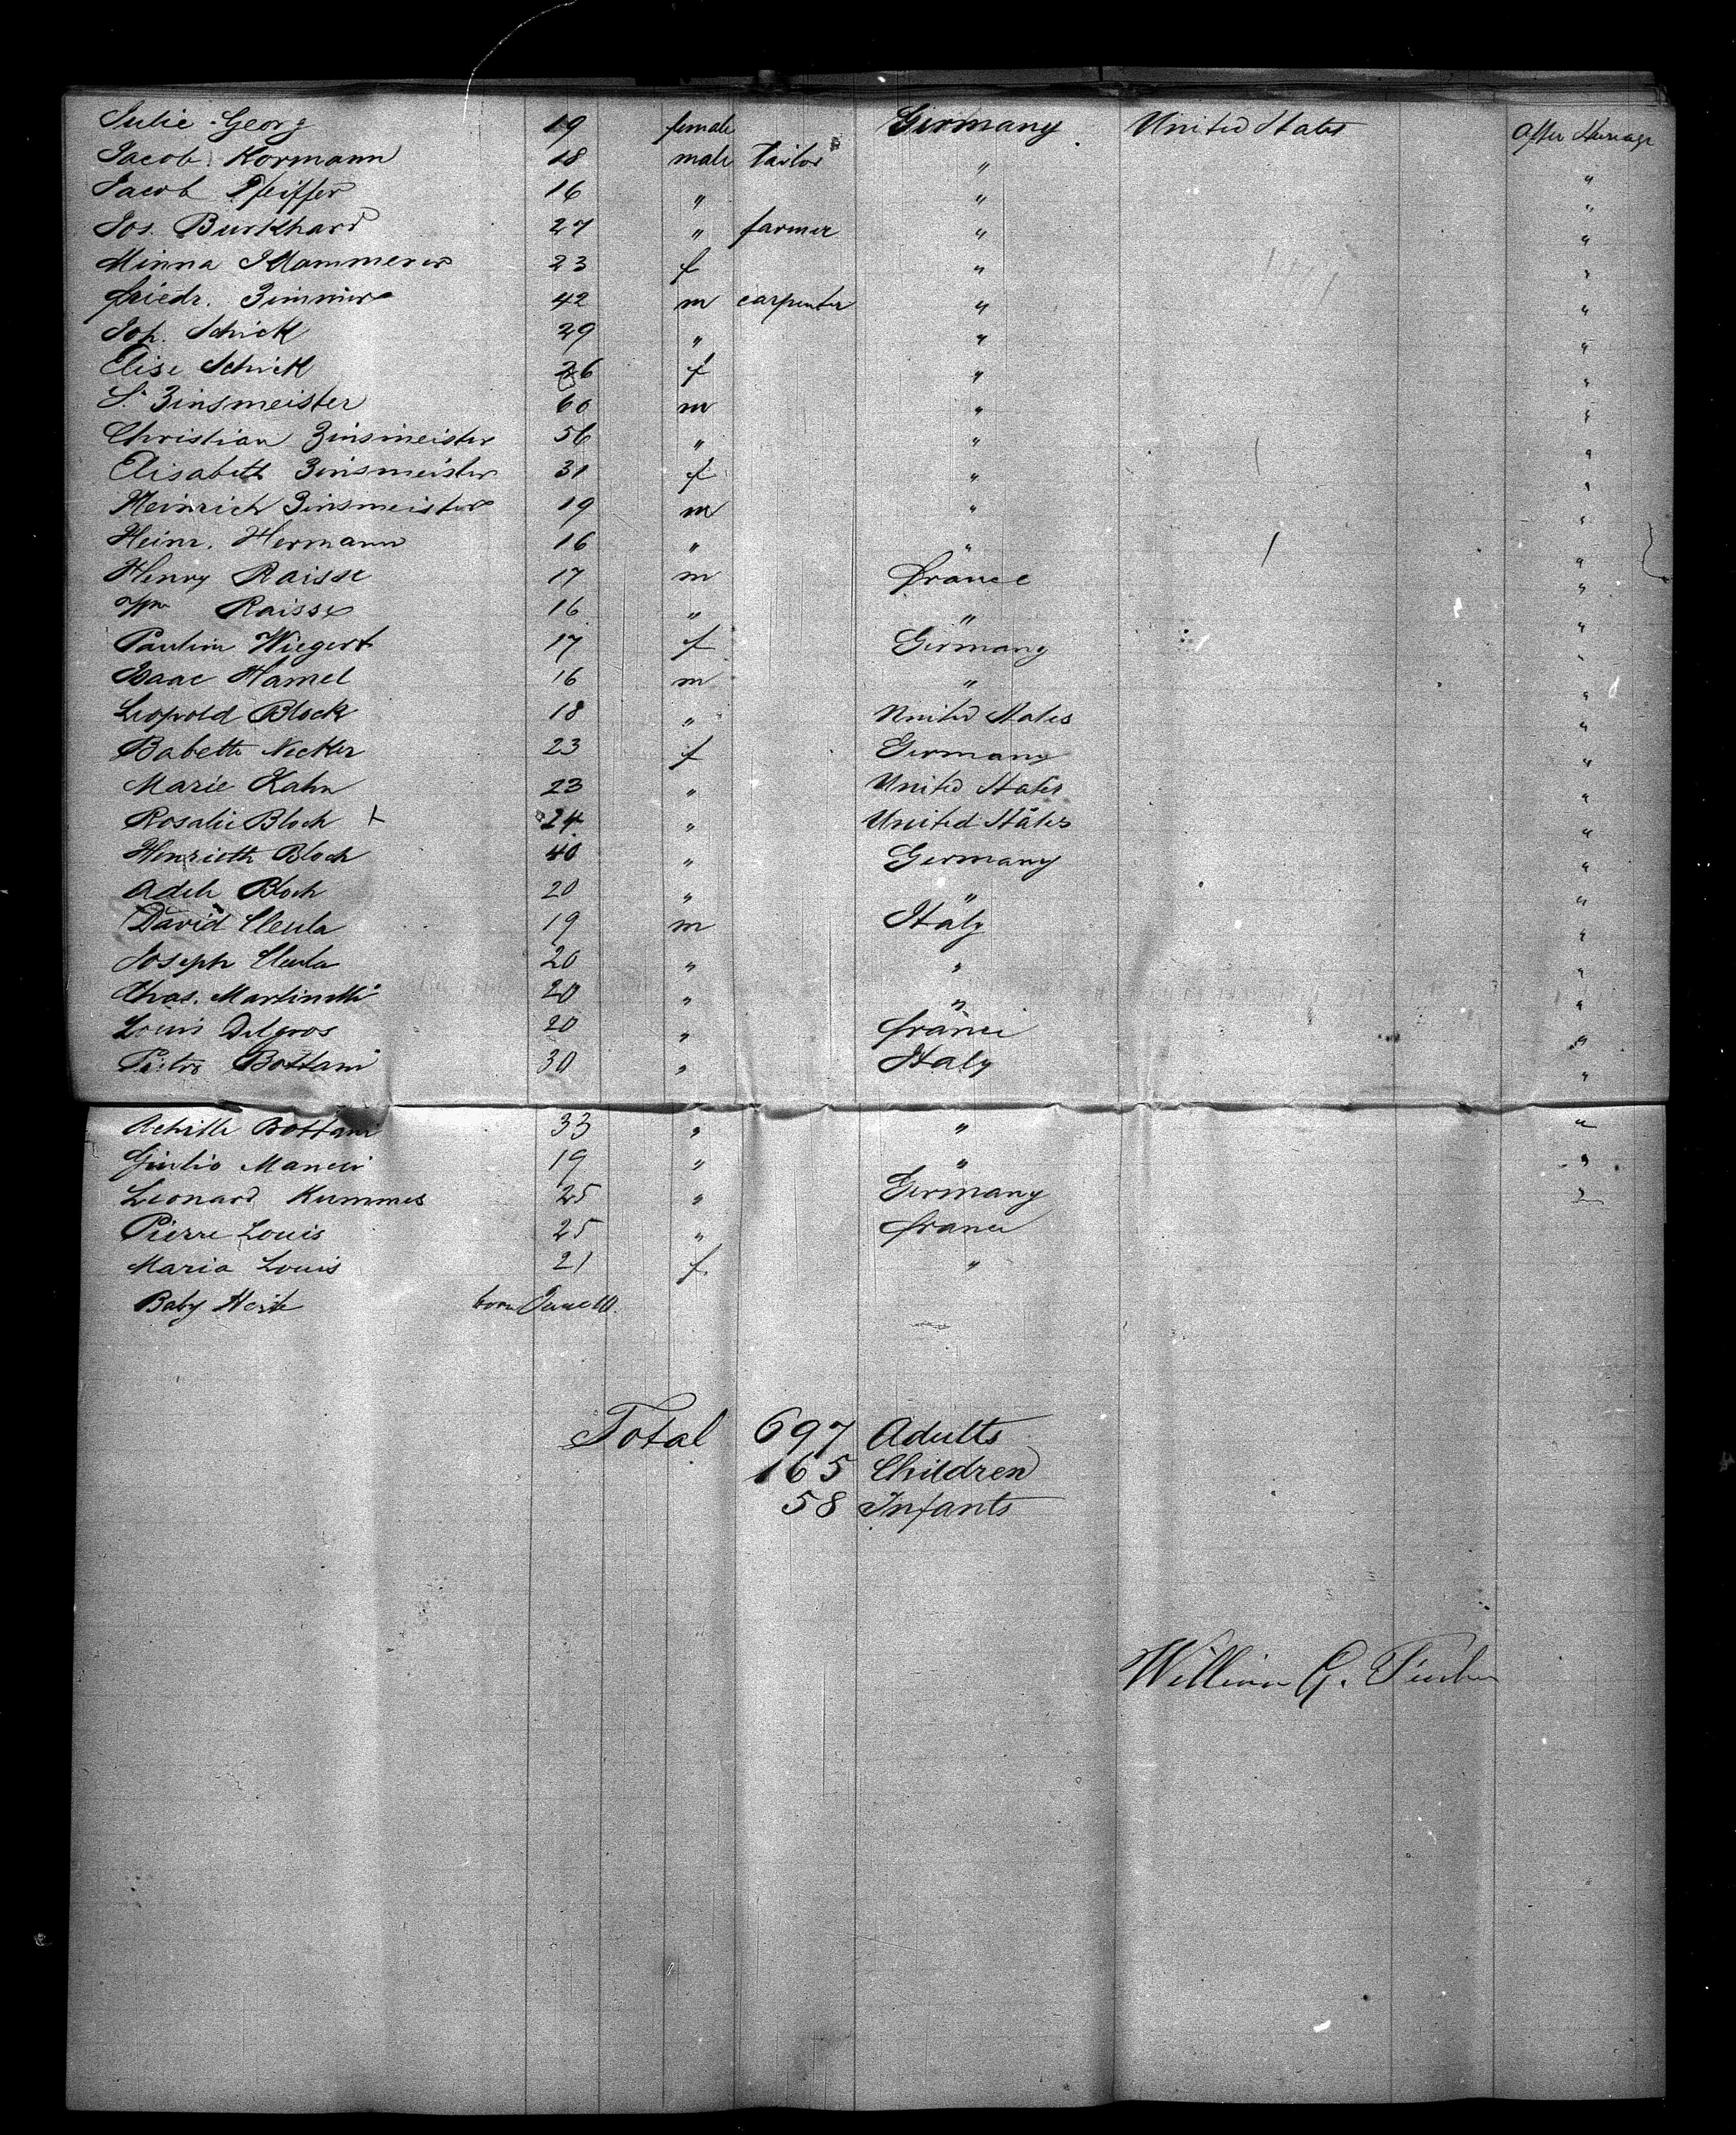 Julie Georg 19 female Germany United States After Steerage
Jacob Kormann 18 male tailor " "
Jacob Pfeiffer 16 " " "
Jos. Burkhard 27 " farmer " "
Minna Klammerer 23 f " "
Friedr. Zimmer 42 m carpenter " "
Joh. Schick 29 " " "
Elise Schick 26 f " "
S. Zinsmeister 60 m " "
Christian Zinsmeister 56 " " "
Elisabeth Zinsmeister 31 f " "
Heinrich Zinsmeister 19 m " "
Heinr. Hermann 16 " " "
Henry Raisse 17 m France "
Wm Raisse 16 " " "
Paulin Wiegert 17 f Germany "
Isaac Hamel 16 m " "
Leopold Block 18 " United States "
Babette Necker 23 f Germany "
Marie Kahn 23 " United States "
Rosalie Bloch x 24 " United States "
Henrieth Bloch 40 " Germany "
Adele Bloch 20 " " "
David Cleula 19 m Italy "
Joseph Cleula 20 " " "
Chas. Martinelli 20 " " "
Louis Delgros 20 " France "
Pietro Bottani 30 " Italy "
Achille Bottani 33 " " "
Giulio Mancii 19 " " "
Leonard Kummes 25 " Germany "
Pierre Louis 25 " France
Maria Louis 21 f. "
Baby born June 10.
Total 697 Adults
165 Children
58 Infants
William G.